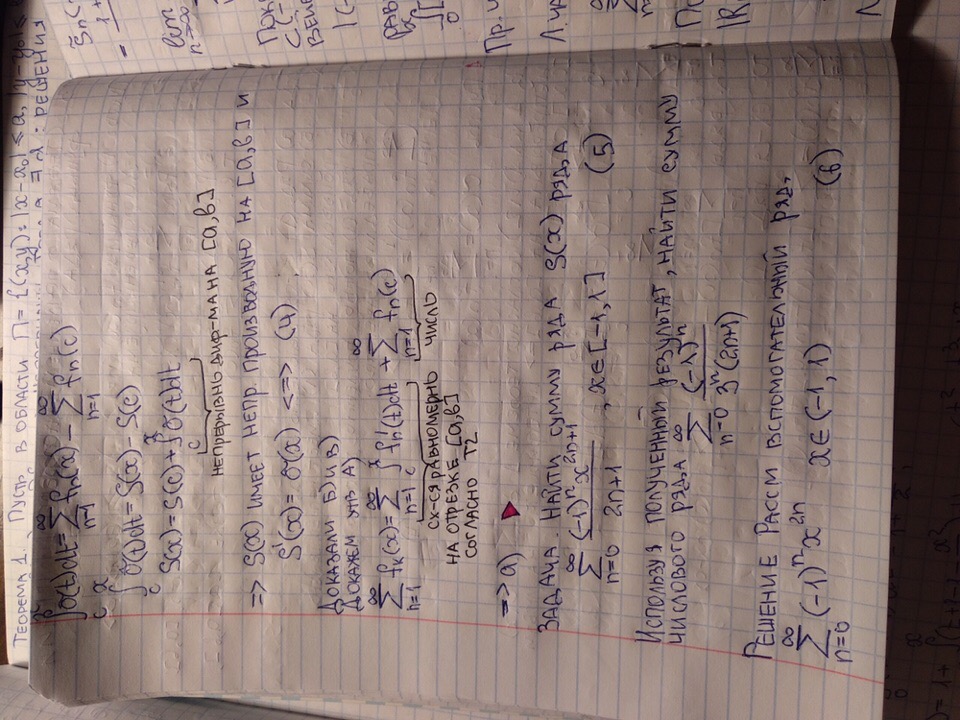 ТЕОРЕМА 1. ПУСТЬ В ОБЛАСТИ П = {(x,y): |x-x₀| ≤ a, |y-y₀| ≤
РЕШЕНИЯ
∫_c^x σ(t)dt = ∑_{n=1}^∞ fₙ(x) - ∑_{n=1}^∞ fₙ(c)
∫_c^x σ(t)dt = S(x) - S(c)
S(x) = S(c) + ∫_c^x σ(t)dt
НЕПРЕРЫВНО ДИФ-МА НА [a,b]
=> S(x) ИМЕЕТ НЕПР. ПРОИЗВОДНУЮ НА [a,b] И
S'(x) = σ(x) <=> (4)
ДОКАЗАЛИ Б) И В)
ДОКАЖЕМ УТВ А)
∑_{n=1}^∞ fₖ(x) = ∑_{n=1}^∞ ∫_c^x fₙ'(t)dt + ∑_{n=1}^∞ fₙ(c)
СХ-СЯ РАВНОМЕРНО ЧИСЛО
НА ОТРЕЗКЕ [a,b]
СОГЛАСНО Т2
=> а)
ЗАДАЧА. НАЙТИ СУММУ РЯДА S(x) РЯДА
∑_{n=0}^∞ (-1)ⁿ x^{2n+1} / 2n+1 , x∈[-1,1] (5)
ИСПОЛЬЗУЯ ПОЛУЧЕННЫЙ РЕЗУЛЬТАТ, НАЙТИ СУММУ
ЧИСЛОВОГО РЯДА ∑_{n=0}^∞ (-1)ⁿ / 3ⁿ(2n+1)
РЕШЕНИЕ РАССМ ВСПОМОГАТЕЛЬНЫЙ РЯД,
∑_{n=0}^∞ (-1)ⁿ x^{2n} x∈(-1,1) (6)
lim
n→∞
Пр. и